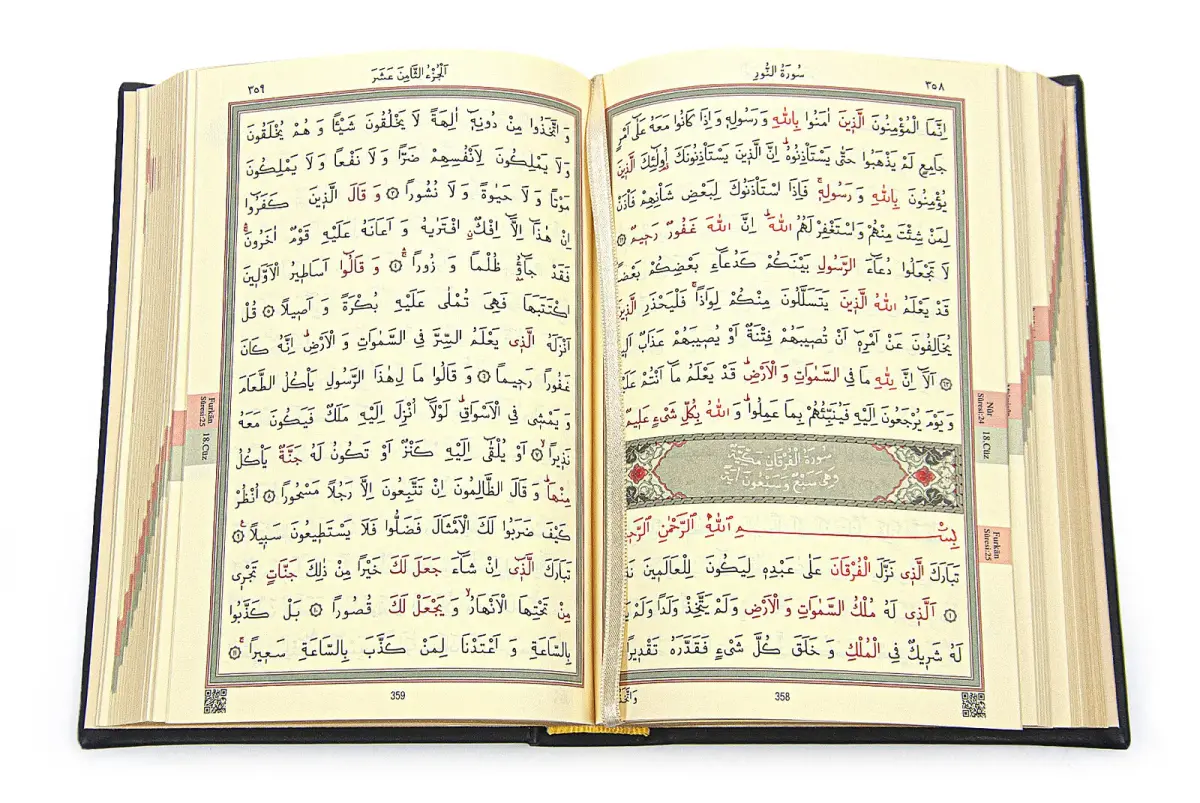 سُورَةُ النُّورِ
٣٥٨
اِنَّمَا الْمُؤْمِنُونَ الَّذٖينَ اٰمَنُوا بِاللّٰهِ وَ رَسُولِهٖ وَ اِذَا كَانُوا مَعَهُ عَلٰٓى اَمْرٍ
جَامِعٍ لَمْ يَذْهَبُوا حَتّٰى يَسْتَأْذِنُوهُؕ اِنَّ الَّذٖينَ يَسْتَأْذِنُونَكَ اُو۬لٰٓئِكَ الَّذٖينَ
يُؤْمِنُونَ بِاللّٰهِ وَ رَسُولِهٖۚ فَاِذَا اسْتَأْذَنُوكَ لِبَعْضِ شَأْنِهِمْ فَأْذَنْ
لِمَنْ شِئْتَ مِنْهُمْ وَ اسْتَغْفِرْ لَهُمُ اللّٰهَؕ اِنَّ اللّٰهَ غَفُورٌ رَحٖيمٌ ﴿٦٢﴾
لَا تَجْعَلُوا دُعَٓاءَ الرَّسُولِ بَيْنَكُمْ كَدُعَٓاءِ بَعْضِكُمْ بَعْضًاؕ
قَدْ يَعْلَمُ اللّٰهُ الَّذٖينَ يَتَسَلَّلُونَ مِنْكُمْ لِوَاذًاۚ فَلْيَحْذَرِ الَّذٖينَ
يُخَالِفُونَ عَنْ اَمْرِهٖٓ اَنْ تُصٖيبَهُمْ فِتْنَةٌ اَوْ يُصٖيبَهُمْ عَذَابٌ
﴿٦٣﴾ اَلَٓا اِنَّ لِلّٰهِ مَا فِي السَّمٰوَاتِ وَ الْاَرْضِؕ قَدْ يَعْلَمُ مَٓا اَنْتُمْ
وَ يَوْمَ يُرْجَعُونَ اِلَيْهِ فَيُنَبِّئُهُمْ بِمَا عَمِلُواؕ وَ اللّٰهُ بِكُلِّ شَيْءٍ عَلٖيمٌ
سُورَةُ الْفُرْقَانِ مَكِّيَّةٌ
وَهِيَ سَبْعٌ وَ سَبْعُونَ اٰيَةً
بِسْمِ اللّٰهِ الرَّحْمٰنِ
تَبَارَكَ الَّذٖي نَزَّلَ الْفُرْقَانَ عَلٰى عَبْدِهٖ لِيَكُونَ لِلْعَالَمٖينَ
﴿١﴾ اَلَّذٖي لَهُ مُلْكُ السَّمٰوَاتِ وَ الْاَرْضِ وَلَمْ يَتَّخِذْ وَلَدًا وَلَمْ
لَهُ شَرٖيكٌ فِي الْمُلْكِ وَ خَلَقَ كُلَّ شَيْءٍ فَقَدَّرَهُ تَقْدٖيرًا
358
Nûr
Sûresi:24
18.Cüz
Furkân
Sûresi:25
اَلْجُزْءُ الثَّامِنَ عَشَرَ
٣٥٩
وَ اتَّخَذُوا مِنْ دُونِهٖٓ اٰلِهَةً لَا يَخْلُقُونَ شَيْـًٔا وَ هُمْ يُخْلَقُونَ
وَلَا يَمْلِكُونَ لِاَنْفُسِهِمْ ضَرًّا وَلَا نَفْعًا وَلَا يَمْلِكُونَ
مَوْتًا وَلَا حَيٰوةً وَلَا نُشُورًا ﴿٣﴾ وَ قَالَ الَّذٖينَ كَفَرُٓوا
اِنْ هٰذَٓا اِلَّٓا اِفْكٌۨ افْتَرٰيهُ وَ اَعَانَهُ عَلَيْهِ قَوْمٌ اٰخَرُونَۚۛ
فَقَدْ جَٓاؤُ۫ ظُلْمًا وَ زُورًاۚۛ ﴿٤﴾ وَ قَالُٓوا اَسَاطٖيرُ الْاَوَّلٖينَ
اكْتَتَبَهَا فَهِيَ تُمْلٰى عَلَيْهِ بُكْرَةً وَ اَصٖيلًا ﴿٥﴾ قُلْ
اَنْزَلَهُ الَّذٖي يَعْلَمُ السِّرَّ فِي السَّمٰوَاتِ وَ الْاَرْضِؕ اِنَّهُ كَانَ
غَفُورًا رَحٖيمًا ﴿٦﴾ وَ قَالُوا مَا لِهٰذَا الرَّسُولِ يَأْكُلُ الطَّعَامَ
وَ يَمْشٖي فِي الْاَسْوَاقِؕ لَوْلَٓا اُنْزِلَ اِلَيْهِ مَلَكٌ فَيَكُونَ مَعَهُ
نَذٖيرًاۙ ﴿٧﴾ اَوْ يُلْقٰٓى اِلَيْهِ كَنْزٌ اَوْ تَكُونُ لَهُ جَنَّةٌ يَأْكُلُ
مِنْهَاؕ وَ قَالَ الظَّالِمُونَ اِنْ تَتَّبِعُونَ اِلَّا رَجُلًا مَسْحُورًا ﴿٨﴾ اُنْظُرْ
كَيْفَ ضَرَبُوا لَكَ الْاَمْثَالَ فَضَلُّوا فَلَا يَسْتَطٖيعُونَ سَبٖيلًاۚ ﴿٩﴾
تَبَارَكَ الَّذٖٓي اِنْ شَٓاءَ جَعَلَ لَكَ خَيْرًا مِنْ ذٰلِكَ جَنَّاتٍ تَجْرٖي
مِنْ تَحْتِهَا الْاَنْهَارُۙ وَ يَجْعَلْ لَكَ قُصُورًا ﴿١٠﴾ بَلْ كَذَّبُوا
بِالسَّاعَةِ وَ اَعْتَدْنَا لِمَنْ كَذَّبَ بِالسَّاعَةِ سَعٖيرًاۚ ﴿١١﴾
359
Furkân
Sûresi:25
18.Cüz